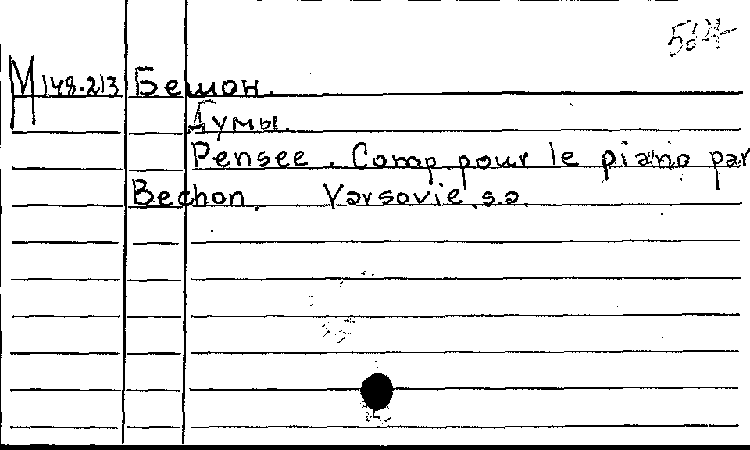 M 148-213 Бешон.
Думы.
Pensee. Comp. pour le piano par
Bechon. Varsovie s.a.